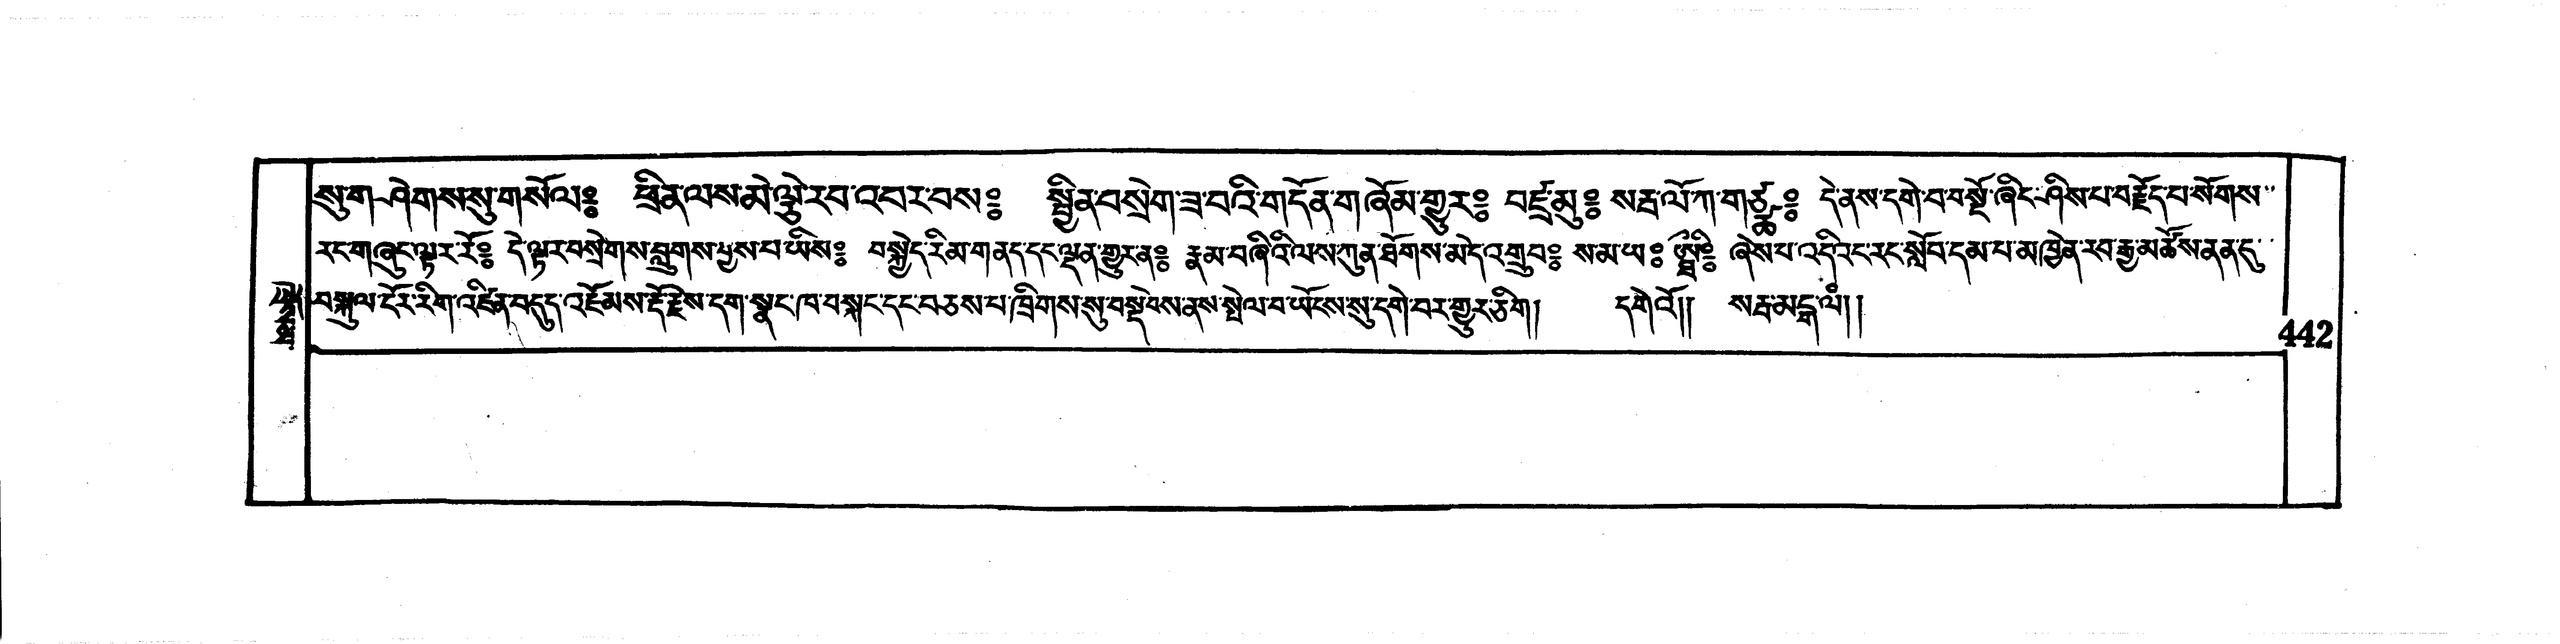 སུ་ག་ཤེགས་སུ་གསོལ༔ ཕྲིན་ལས་མེ་ལྕེ་རབ་འབར་བས༔ སྦྱིན་བསྲེག་ཟ་བའི་གདོན་ག་ཞོམ་གྱུར༔ བཛྲ་མུ༔ སརྦ་ལོ་ཀ་གཙྪ༔ དེ་ནས་དགེ་བ་བསྔོ་ཞིང་ཤིས་པ་བརྗོད་པ་སོགས་
རང་གཞུང་ལྟར་རོ༔ དེ་ལྟར་བསྲེགས་བླུགས་ཕྱས་པ་ཡིས༔ བསྐྱེད་རིམ་གནད་དང་ལྡན་གྱུར་ན༔ རྣམ་བཞིའི་ལས་ཀུན་ཐོགས་མེད་འགྲུབ༔ ས་མ་ཡ༔ ཞེས་པ་འདིའང་རང་སློབ་དམ་པ་མཁྱེན་རབ་རྒྱ་མཚོས་ནན་དུ་
བསྐུལ་ངོར་རིག་འཛིན་བདུད་འཇོམས་རྡོ་རྗེས་དག་སྣང་ཁ་བསྐང་དང་བཅས་པ་ཁྲིགས་སུ་བསྡེབས་ནས་སྤེལ་བ་ཡོངས་སུ་དགེ་བར་གྱུར་ཅིག། དགེའོ།། སརྦ་མངྒ་ལཾ།།
442